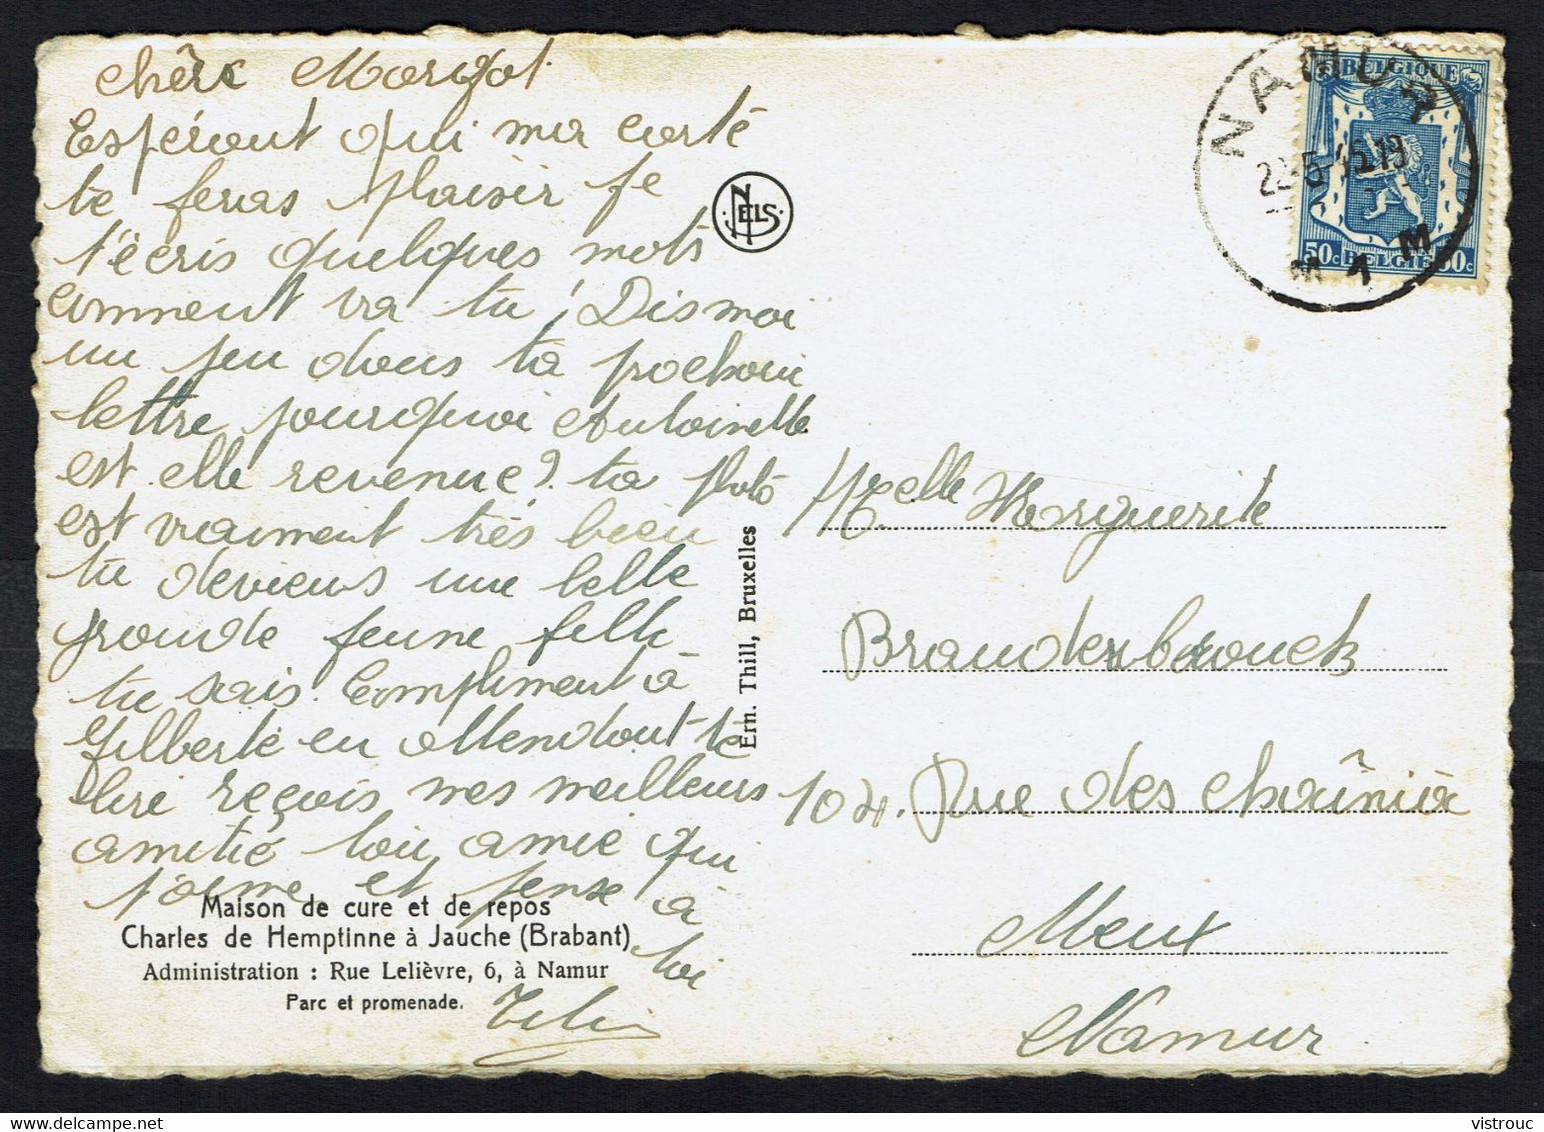 chère Margot.
Espérant qui ma carte
te feras plaisir je
t'écris quelques mots
comment va tu! Dis moi
un peu dans ta prochain
lettre pourquoi Antoinette
est elle revenue? ta photo
est vraiment très bien
tu deviens une belle
grande jeune fille
tu sais. Compliment à
Gilberte en attendant te
lire reçois mes meilleurs
amitié toi amie qui
t'aime et pense à
toi
Maison de cure et de repos
Charles de Hemptinne à Jauche (Brabant)
Administration : Rue Lelièvre, 6, à Namur
Parc et promenade.
NELS
Ern. Thill, Bruxelles
NAMUR
BELGIQUE
50c BELGIE 50c
M 1 M
Melle Marguerite
Brandenbrouck
104. Rue des
Meux
Namur
vistrouc